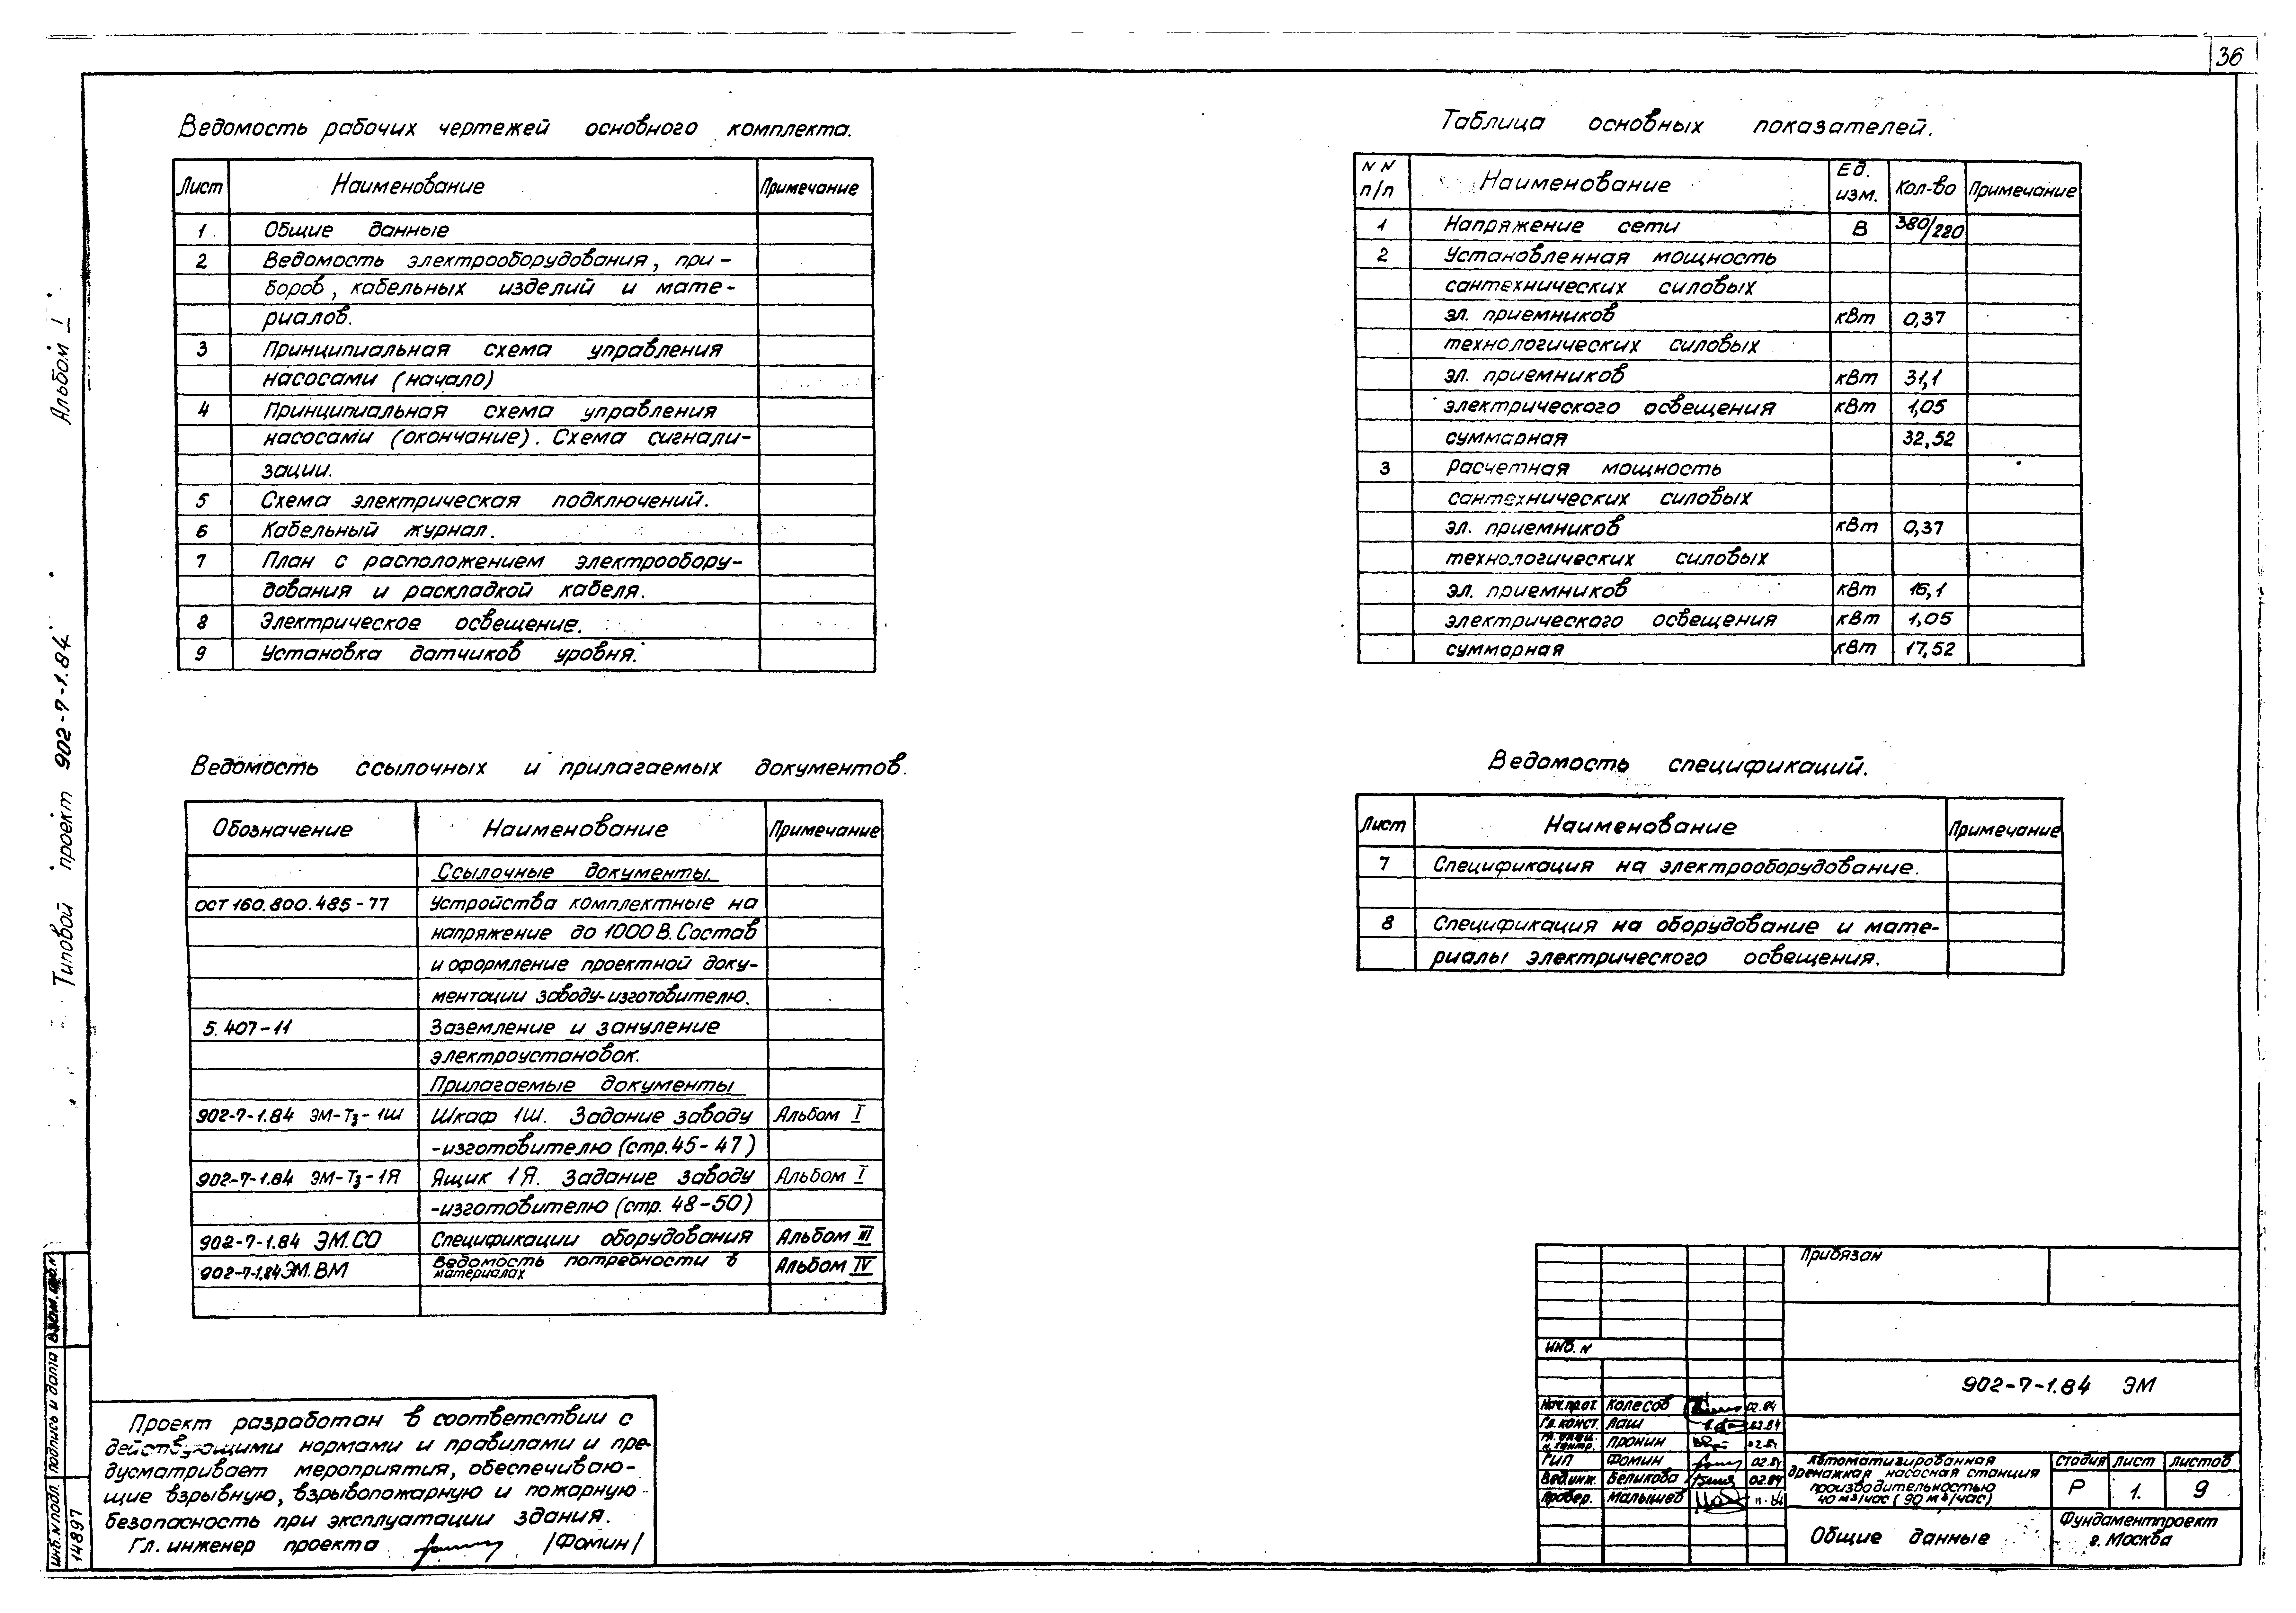 36
Ведомость рабочих чертежей основного комплекта.
Лист Наименование Примечание
1 Общие данные
2 Ведомость электрооборудования, при-
боров, кабельных изделий и мате-
риалов.
3 Принципиальная схема управления
насосами (начало)
4 Принципиальная схема управления
насосами (окончание). Схема сигнали-
зации.
5 Схема электрическая подключений.
6 Кабельный журнал.
7 План с расположением электрообору-
дования и раскладкой кабеля.
8 Электрическое освещение.
9 Установка датчиков уровня.
Таблица основных показателей.
NN п/п Наименование Ед. изм. Кол-во Примечание
1 Напряжение сети В 380/220
2 Установленная мощность
сантехнических силовых
эл. приемников кВт 0,37
технологических силовых
эл. приемников кВт 31,1
электрического освещения кВт 1,05
суммарная 32,52
3 Расчетная мощность
сантехнических силовых
эл. приемников кВт 0,37
технологических силовых
эл. приемников кВт 16,1
электрического освещения кВт 1,05
суммарная кВт 17,52
Ведомость ссылочных и прилагаемых документов.
Обозначение Наименование Примечание
Ссылочные документы
ОСТ 160.800.485-77 Устройства комплектные на
напряжение до 1000 В. Состав
и оформление проектной доку-
ментации заводу-изготовителю.
5.407-11 Заземление и зануление
электроустановок.
Прилагаемые документы
902-7-1.84 ЭМ-Тз-1Ш Шкаф 1Ш. Задание заводу Альбом I
-изготовителю (стр. 45-47)
902-7-1.84 ЭМ-Тз-1Я Ящик 1Я. Задание заводу Альбом I
-изготовителю (стр. 48-50)
902-7-1.84 ЭМ.СО Спецификации оборудования Альбом III
902-7-1.84 ЭМ.ВМ Ведомость потребности в материалах Альбом IV
Ведомость спецификаций.
Лист Наименование Примечание
7 Спецификация на электрооборудование.
8 Спецификация на оборудование и мате-
риалы электрического освещения.
Проект разработан в соответствии с
действующими нормами и правилами и пре-
дусматривает мероприятия, обеспечиваю-
щие взрывную, взрывопожарную и пожарную
безопасность при эксплуатации здания.
Гл. инженер проекта /Фомин/
Привязан
Инв. N
902-7-1.84 ЭМ
Нач. прот. Колесов 02.84
Гл. конст. Лаш 02.84
Н. контр. Пронин 02.84
ГИП Фомин 02.84
Вед. инж. Беликова 02.84
Провер. Малышев 11.84
Автоматизированная
дренажная насосная станция
производительностью
40 м3/час (90 м3/час)
Стадия Лист Листов
Р 1. 9
Общие данные
Фундаментпроект
г. Москва
Альбом I
Типовой проект 902-7-1.84
Взам. инв. N
Подпись и дата
Инв. N подл.
14897